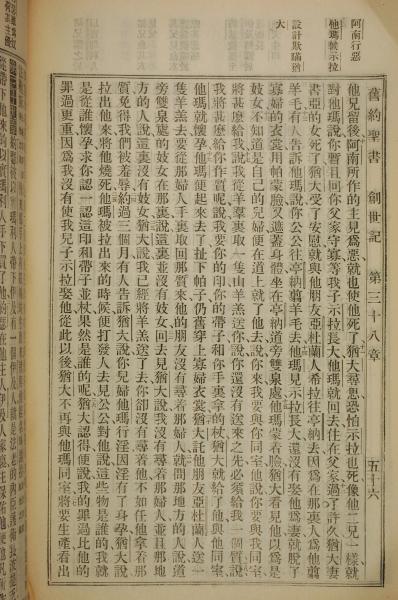 阿南行惡
他瑪被示拉
設計欺瞞猶
大
舊約聖書 創世記 第三十八章 五十六
他兄留後阿南所作的主見爲惡就也使他死了猶大尋思恐怕示拉也死像他二兄一樣就
對他瑪說你暫且回你父家守寡等我子示拉長大他瑪就回去住在父家過了許久猶大妻
書亞的女死了猶大受了安慰就與他朋友亞杜蘭人希拉往亭納去因爲在那裏人爲他翦
羊毛有人告訴他瑪說你公公往亭納翦羊毛去他瑪見示拉長大還沒有娶他爲妻就脫了
寡婦的衣裳用帕蒙臉又遮蓋身體坐在亭納道旁雙泉處他瑪蒙着臉猶大看見他以爲是
妓女不知道是自己的兒婦便在道上就了他去說你來我要與你同室他說你要與我同室
將甚麽給我說我從羊羣裏取一隻山羊羔送你說你還沒有送來之先必須給我一個質說
我將甚麽給你作質呢說我要你的印你的帶子和你手裏拿的杖猶大就給了他與他同室
他瑪就懷孕他瑪便起來去了扯下帕子仍舊穿上寡婦衣裳猶大託他朋友亞杜蘭人送一
隻羊羔去要從那婦人手裏取回那質來他的朋友沒有尋着那婦人就問那地方的人說道
旁雙泉處的妓女在那裏說這裏並沒有妓女回去見猶大說我沒有尋着那婦人並且那地
方的人說這裏沒有妓女猶大說我已經將羊羔送了去你卻沒有尋着他不如任他拿着那
質免得我們被羞辱約過三個月有人告訴猶大說你兒婦他瑪行淫因淫有了身孕猶大說
拉出他來將他燒死他瑪被拉出來的時候便打發人去見公公對他說這些物是誰的我就
是從誰懷孕求你認一認這印和帶子並杖果然是誰的呢猶大認得便說我的罪過比他的
罪過更重因爲我沒有使我兒子示拉娶他從此以後猶大不再與他瑪同室將要生產看出